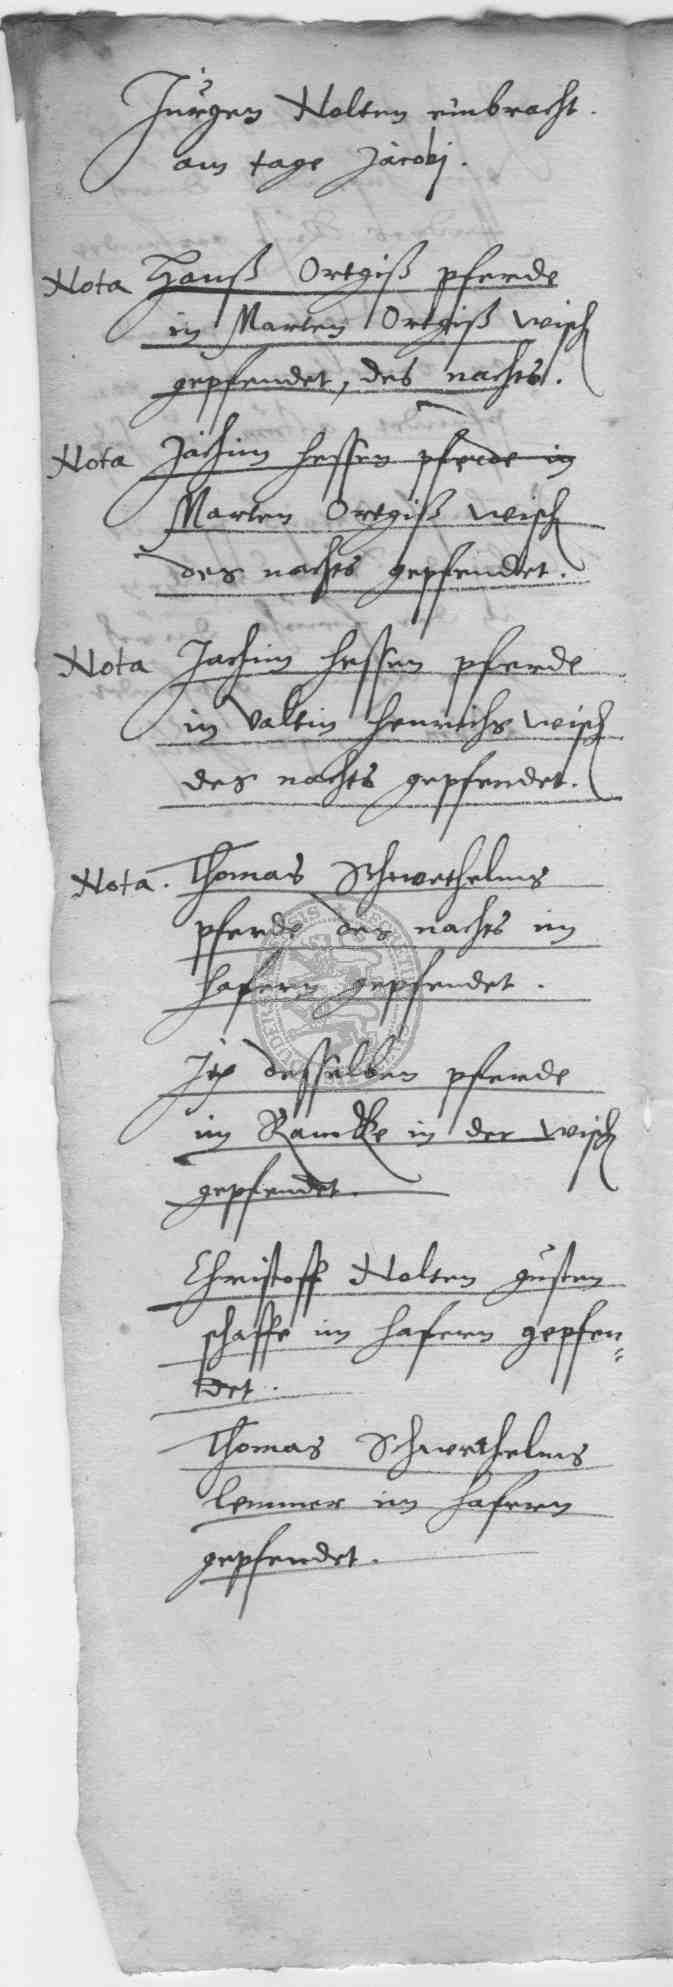 Jürgen Nolten einbracht.
am tage Jacobj.
Nota Hanß Ortgiß pferde
in Marten Ortgiß wisch
gepfendet, des nachts.
Nota Jachim Hessen pferde in
Marten Ortgiß wisch
des nachts gepfendet.
Nota Jachim Hessen pferde
in Valtin Henrichs wisch
des nachts gepfendet.
Nota. Thomas Schwethelms
pferde des nachts im
hafern gepfendet.
desselben pferde
im in der wisch
gepfendet.
Christoff Nolten güsten
schaffe im hafern gepfen=
det.
Thomas Schwethelms
lemmer im hafern
gepfendet.